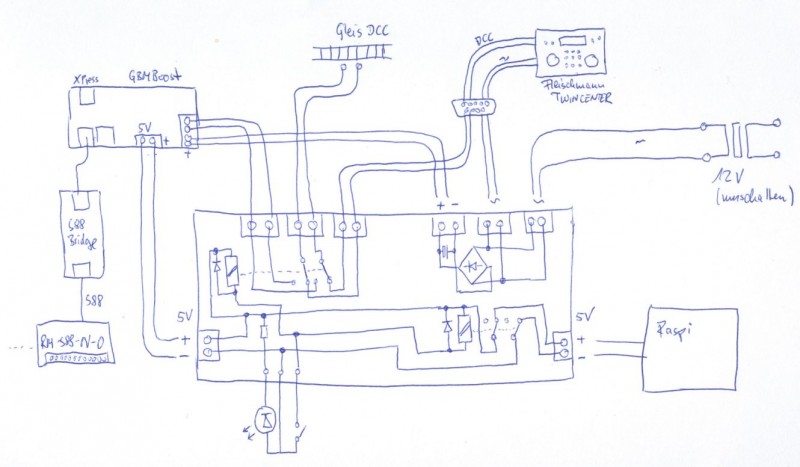 Gleis DCC
DCC
~
Fleischmann
TWINCENTER
XPress
GBMBoost
5V
+
+
~
12V
(umschalten)
S88
Bridge
+ -
~
~
S88
5V
+
-
5V
+
-
RM-S88-N-O
Raspi